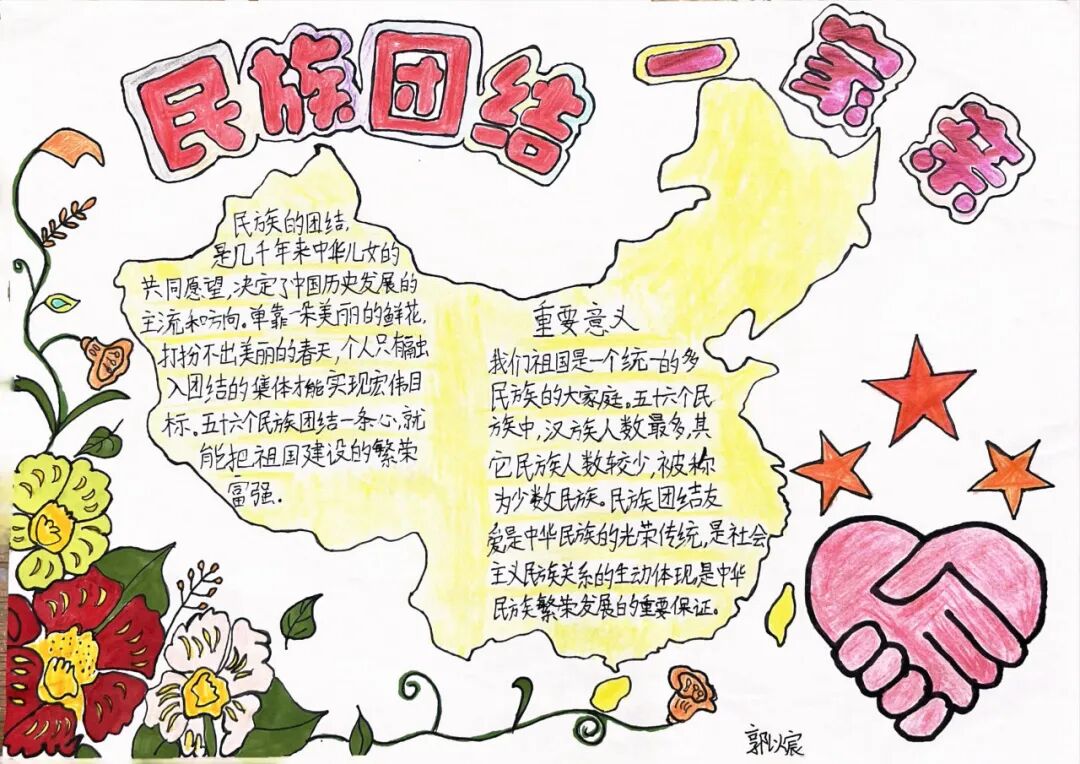 民族团结一家亲
民族的团结,
是几千年来中华儿女的
共同愿望,决定了中国历史发展的
主流和方向。单靠一朵美丽的鲜花,
打扮不出美丽的春天,个人只有融
入团结的集体才能实现宏伟目
标。五十六个民族团结一条心,就
能把祖国建设的繁荣
富强.
重要意义
我们祖国是一个统一的多
民族的大家庭。五十六个民
族中,汉族人数最多,其
它民族人数较少,被称
为少数民族。民族团结友
爱是中华民族的光荣传统,是社会
主义民族关系的生动体现,是中华
民族繁荣发展的重要保证。
郭以宸